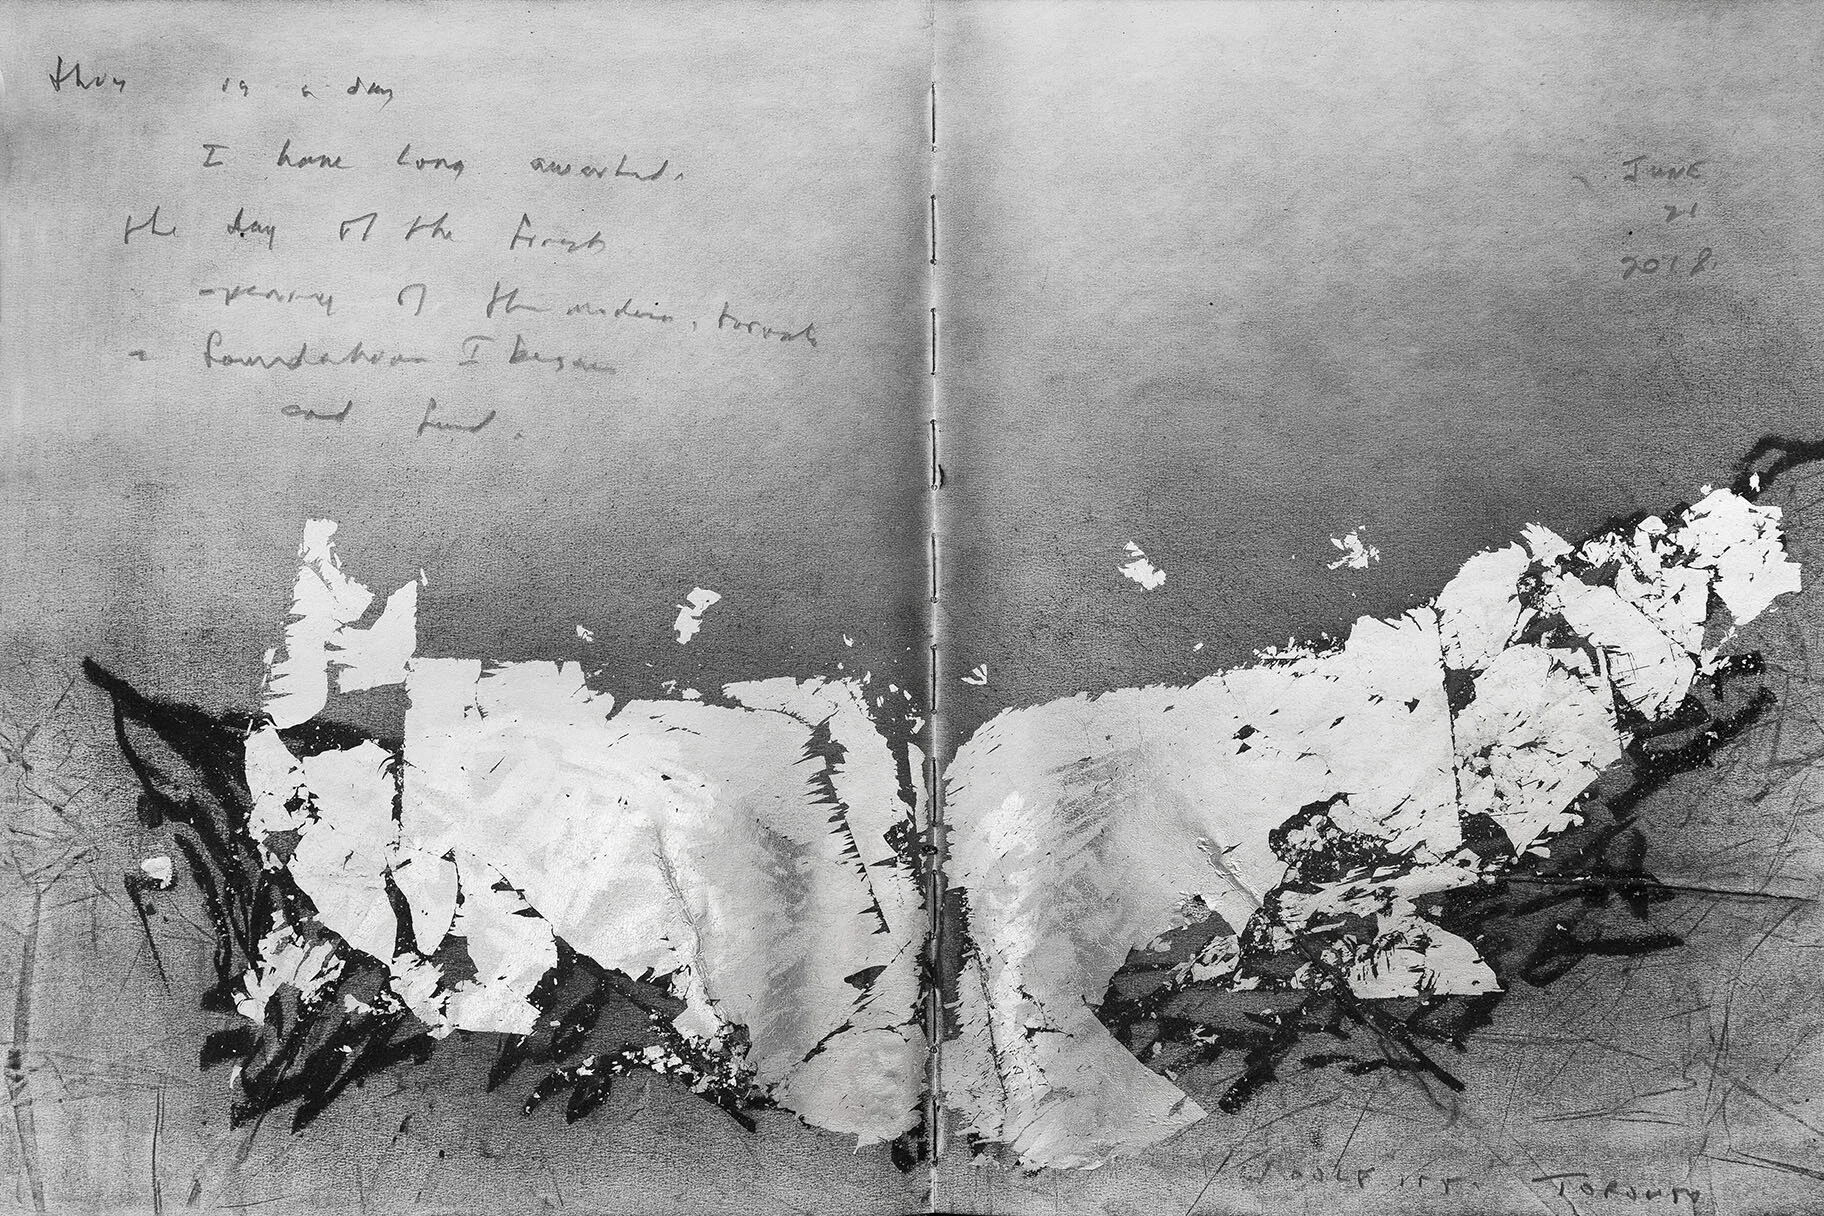 this is a day
I have long awaited.
the day of the first
opening of the modern, toronto
a foundation I began
and fund.
JUNE
21
2018.
TORONTO